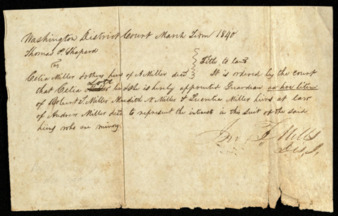 Washington District Court March Term 1840
Thomas P Shapard
vs
Title to land
Celia Miller & others heirs of A Miller decd
It is ordered by the court
that Celia Miller be & she is hereby appointed Guardian
of Robert T. Miller Meredith N. Miller & Miller heirs at law
of Andrew Miller decd to represent the interest in the suit of the said
heirs who are minors
Mills